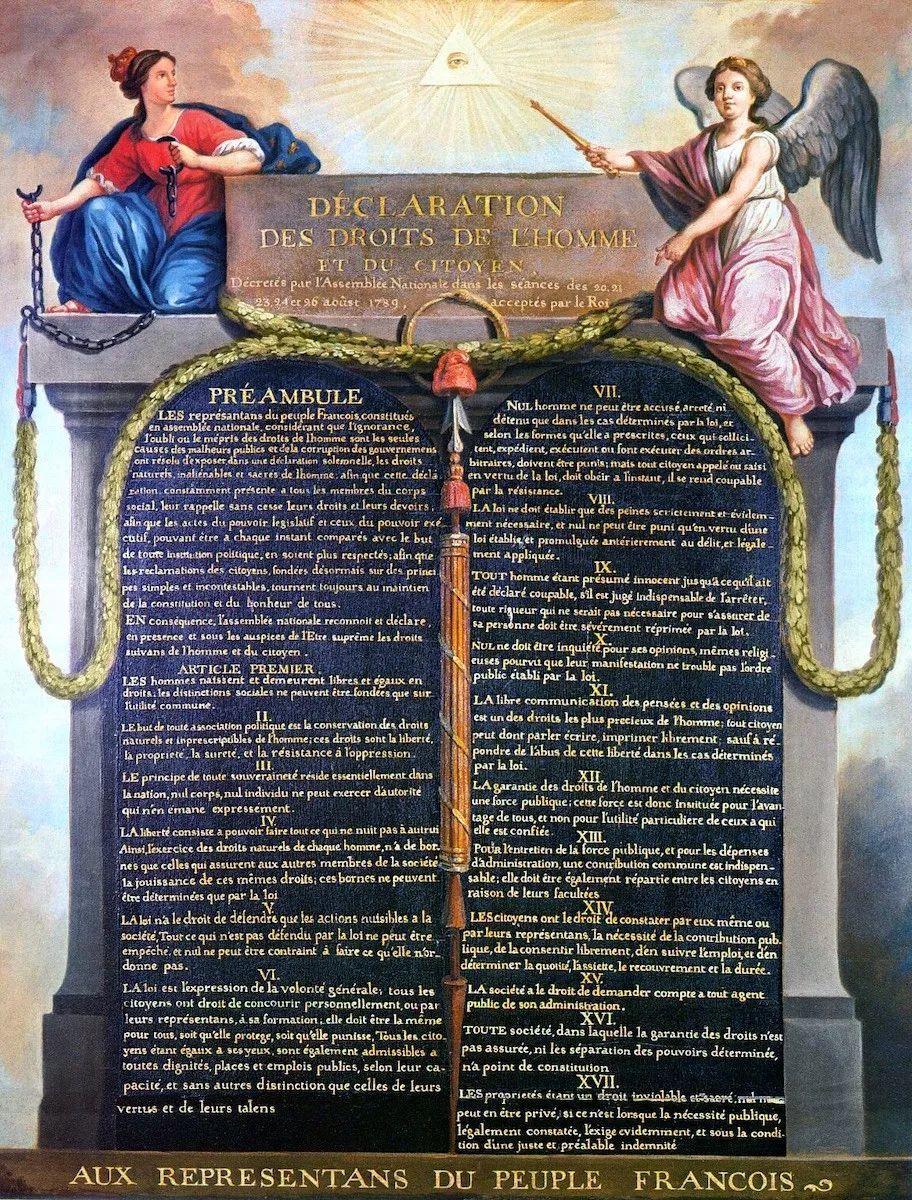 DÉCLARATION
DES DROITS DE L'HOMME
ET DU CITOYEN,
Décretés par l'Assemblée Nationale dans les séances des 20, 21
23, 24 et 26 aoûst 1789, acceptés par le Roi
PRÉAMBULE
LES représantans du peuple François, constitués
en assemblée nationale, considérant que l'ignorance,
l'oubli ou le mépris des droits de l'homme sont les seules
causes des malheurs publics et de la corruption des gouvernemens
ont résolu d'exposer dans une déclaration solemnelle, les droits
naturels, inaliénables et sacrés de l'homme; afin que cette décla
ration, constamment présente a tous les membres du corps
social, leur rappelle sans cesse leurs droits et leurs devoirs,
afin que les actes du pouvoir legislatif et ceux du pouvoir exé
cutif, pouvant être a chaque instant comparés avec le but
de toute institution politique, en soient plus respectés; afin que
les reclamations des citoyens, fondées désormais sur des princi
pes simples et incontestables, tournent toujours au maintien
de la constitution et du bonheur de tous.
EN conséquence, l'assemblée nationale reconnoit et déclare,
en presence et sous les auspices de l'Etre suprême les droits
suivans de l'homme et du citoyen.
ARTICLE PREMIER.
LES hommes naissent et demeurent libres et égaux en
droits; les distinctions sociales ne peuvent être fondées que sur
l'utilité commune.
II.
LE but de toute association politique est la conservation des droits
naturels et inprescriptibles de l'homme; ces droits sont la liberté,
la proprieté, la sureté, et la résistance à l'oppression.
III.
LE principe de toute souveraineté réside essentiellement dans
la nation, nul corps, nul individu ne peut exercer d'autorité
qui n'en émane expressement.
IV.
LA liberté consiste a pouvoir faire tout ce qui ne nuit pas à autrui
Ainsi, l'exercice des droits naturels de chaque homme, n'a de bor-
nes que celles qui assurent aux autres membres de la société
la jouissance de ces mêmes droits; ces bornes ne peuvent
être déterminées que par la loi
V.
LA loi n'a le droit de défendre que les actions nuisibles a la
société. Tout ce qui n'est pas défendu par la loi ne peut être
empêché, et nul ne peut être contraint à faire ce qu'elle n'or-
donne pas.
VI.
LA loi est l'expression de la volonté générale; tous les
citoyens ont droit de concourir personnellement, ou par
leurs représentans, à sa formation; elle doit être la même
pour tous, soit qu'elle protege, soit qu'elle punisse, Tous les cito-
yens étant égaux a ses yeux, sont également admissibles a
toutes dignités, places et emplois publics, selon leur ca-
pacité, et sans autres distinction que celles de leurs
vertus et de leurs talens
VII.
NUL homme ne peut être accusé, arreté, ni
détenu que dans les cas déterminés par la loi, et
selon les formes qu'elle a prescrites, ceux qui sollici-
tent, expédient, exécutent ou font exécuter des ordres ar-
bitraires, doivent être punis; mais tout citoyen appelé ou saisi
en vertu de la loi, doit obéir a l'instant, il se rend coupable
par la résistance.
VIII.
LA loi ne doit établir que des peines strictement et évidem-
ment nécessaire, et nul ne peut être puni qu'en vertu d'une
loi établie et promulguée antérierement au délit, et légale-
ment appliquée.
IX.
TOUT homme étant présumé innocent jusqu'à ce qu'il ait
été déclaré coupable, s'il est jugé indispensable de l'arrêter,
toute rigueur qui ne serait pas nécessaire pour s'assurer de
sa personne doit être sévèrement réprimée par la loi.
X.
NUL ne doit être inquiété pour ses opinions, mêmes religi-
euses pourvu que leur manifestation ne trouble pas l'ordre
public établi par la loi.
XI.
LA libre communication des pensées et des opinions
est un des droits les plus precieux de l'homme; tout citoyen
peut dont parler écrire, imprimer librement: sauf à ré-
pondre de l'abus de cette liberté dans les cas déterminés
par la loi.
XII.
LA garantie des droits de l'homme et du citoyen nécessite
une force publique; cette force est donc instituée pour l'avan-
tage de tous, et non pour l'utilité particuliere de ceux a qui
elle est confiée.
XIII.
POUR l'entretien de la force publique, et pour les dépenses
d'administration, une contribution commune est indispen-
sable; elle doit être également répartie entre les citoyens en
raison de leurs facultées
XIV.
LES citoyens ont le droit de constater par eux même ou
par leurs représentans, la nécessité de la contribution pub-
lique, de la consentir librement, d'en suivre l'emploi, et d'en
déterminer la quotité, l'assiette, le recouvrement et la durée.
XV.
LA société a le droit de demander compte a tout agent
public de son administration.
XVI.
TOUTE société, dans laquelle la garantie des droits n'est
pas assurée, ni les séparation des pouvoirs déterminée,
n'a point de constitution
XVII.
LES proprietés étant un droit inviolable et sacré, nul ne
peut en être privé, si ce n'est lorsque la nécessité publique,
légalement constatée, l'exige evidemment, et sous la condi-
tion d'une juste et préalable indemnité
AUX REPRESENTANS DU PEUPLE FRANCOIS